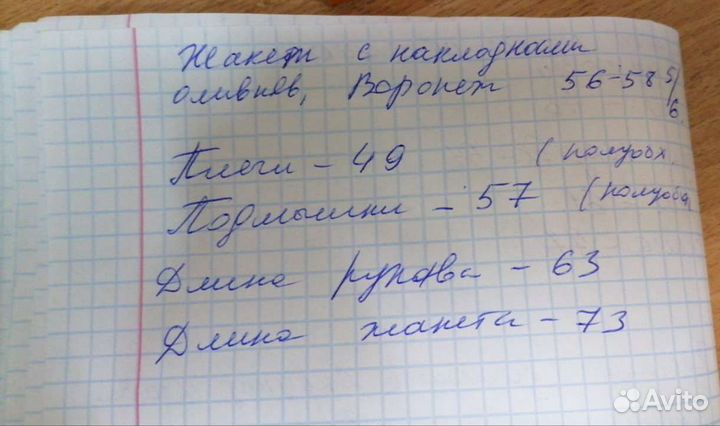 Жакет с накладными
оливков, Воронеж 56-58 5/6
Плечи - 49 (полуобх.
Подмышки - 57 (полуобх
Длина рукава - 63
Длина жакета - 73
Avito